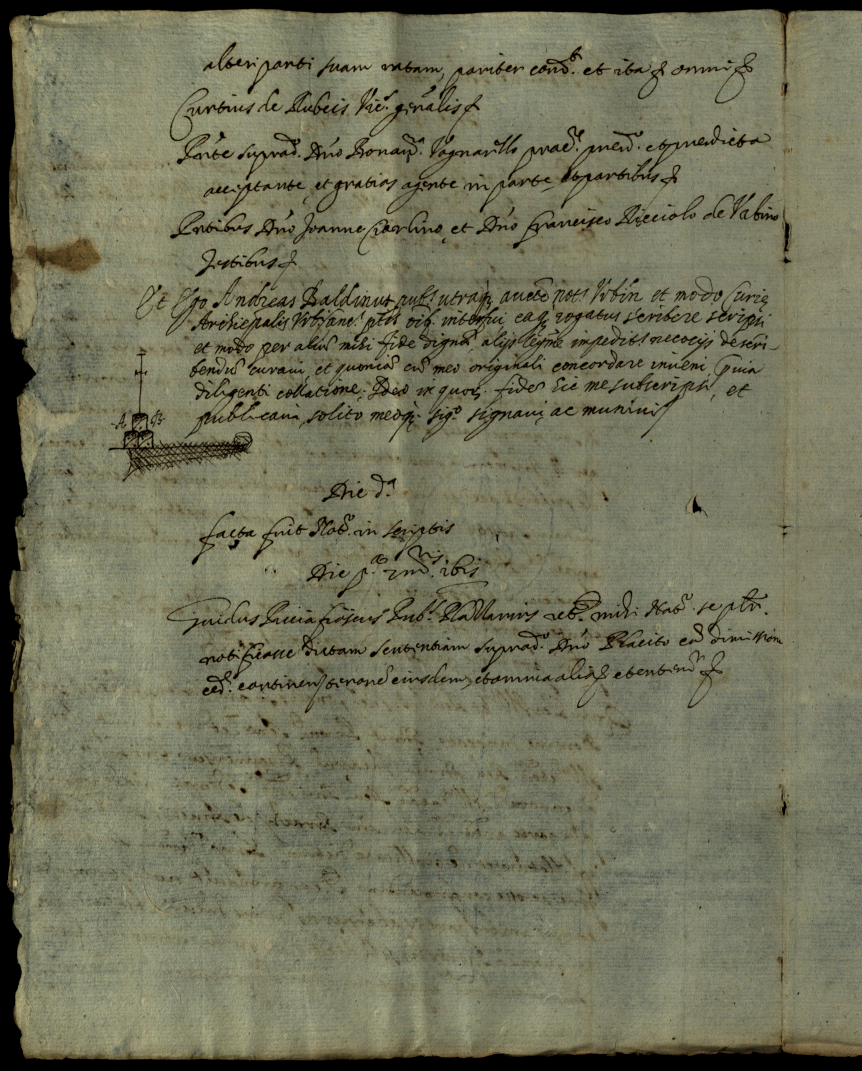 alteri parti suam ratam, pariter cond.t et ita et omni
Curtius de Rubeis Vic.s gñalis
Pñte suprad.o Dño Bonav.a Vagnarello praed.
acceptante, et gratias agente in parte et partibus
Pñtibus Dño Joanne Ciarlino, et Dño Francisco Ricciolo de Urbino
Testibus
Et Ego Andreas Baldinus pub.s utraq; aucte not.s Urbin et modo Curię
Archiepalis Urb. ptis oib. interfui eaq; rogatus scribere scripsi
et modo per aliũ mihi fide dignũ alijs legme impeditus negocijs descri-
bendũ curavi, et quoniã cũ meo originali concordare inveni, quia
diligenti collatione; Ideo in quorũ fidẽ hic me subscripsi, et
publicavi, solito meoq; sig.o signavi, ac munivi
A B
Die d.a
facta fuit Not.o in scriptis
Die p.a mens. xbris
Guidus Pub.s ret. mihi Not.o se
notificasse dictam sententiam suprad.o Dño Placito cũ dimissione
ced. eiusdem, et omnia alia